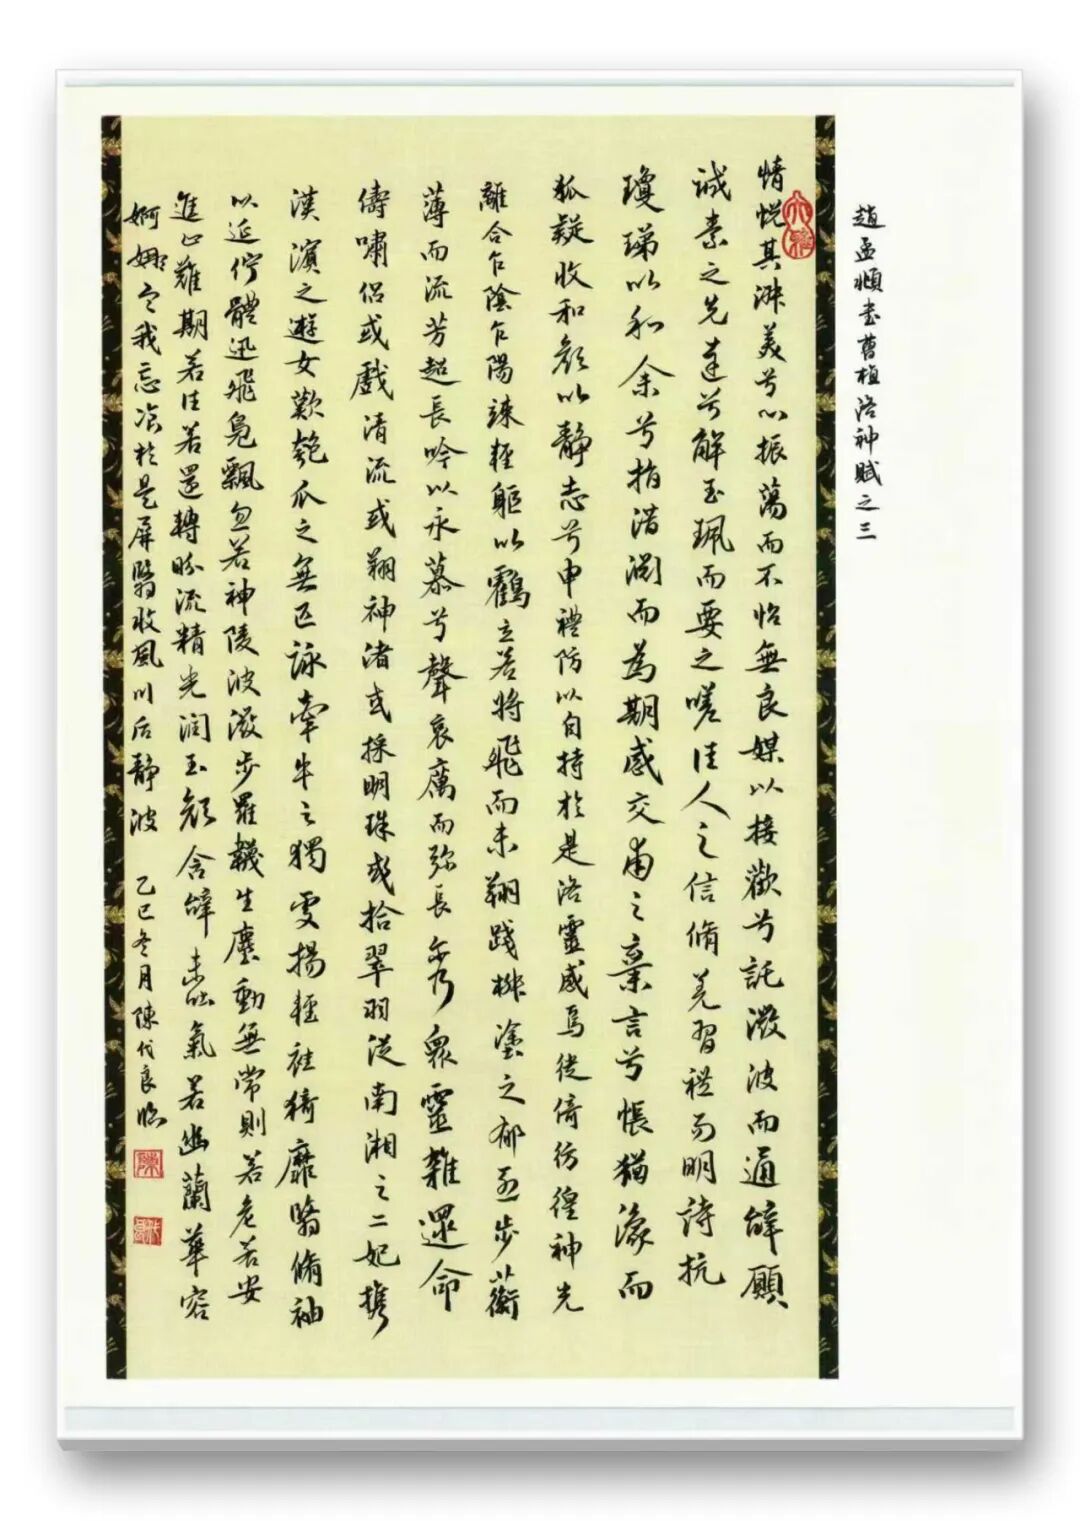 趙孟頫書曹植洛神賦之三
大雅
情悅其淑美兮心振蕩而不怡無良媒以接歡兮託微波而通辭願
誠素之先達兮解玉珮而要之嗟佳人之信脩羌習禮而明詩抗
瓊珶以和余兮指潛淵而為期感交甫之棄言兮悵猶豫而
狐疑收和顏以靜志兮申禮防以自持於是洛靈感焉徙倚彷徨神光
離合乍陰乍陽竦輕軀以鶴立若將飛而未翔踐椒塗之郁烈步蘅
薄而流芳超長吟以永慕兮聲哀厲而彌長爾乃眾靈雜遝命
儔嘯侶或戲清流或翔神渚或採明珠或拾翠羽從南湘之二妃攜
漢濱之遊女歎匏瓜之無匹詠牽牛之獨處揚輕袿猗靡翳脩袖
以延佇體迅飛鳧飄忽若神陵波微步羅韈生塵動無常則若危若安
進止難期若往若還轉眄流精光潤玉顏含辭未吐氣若幽蘭華容
婀娜令我忘飡於是屏翳收風川后靜波 乙巳冬月陳代良臨
陳